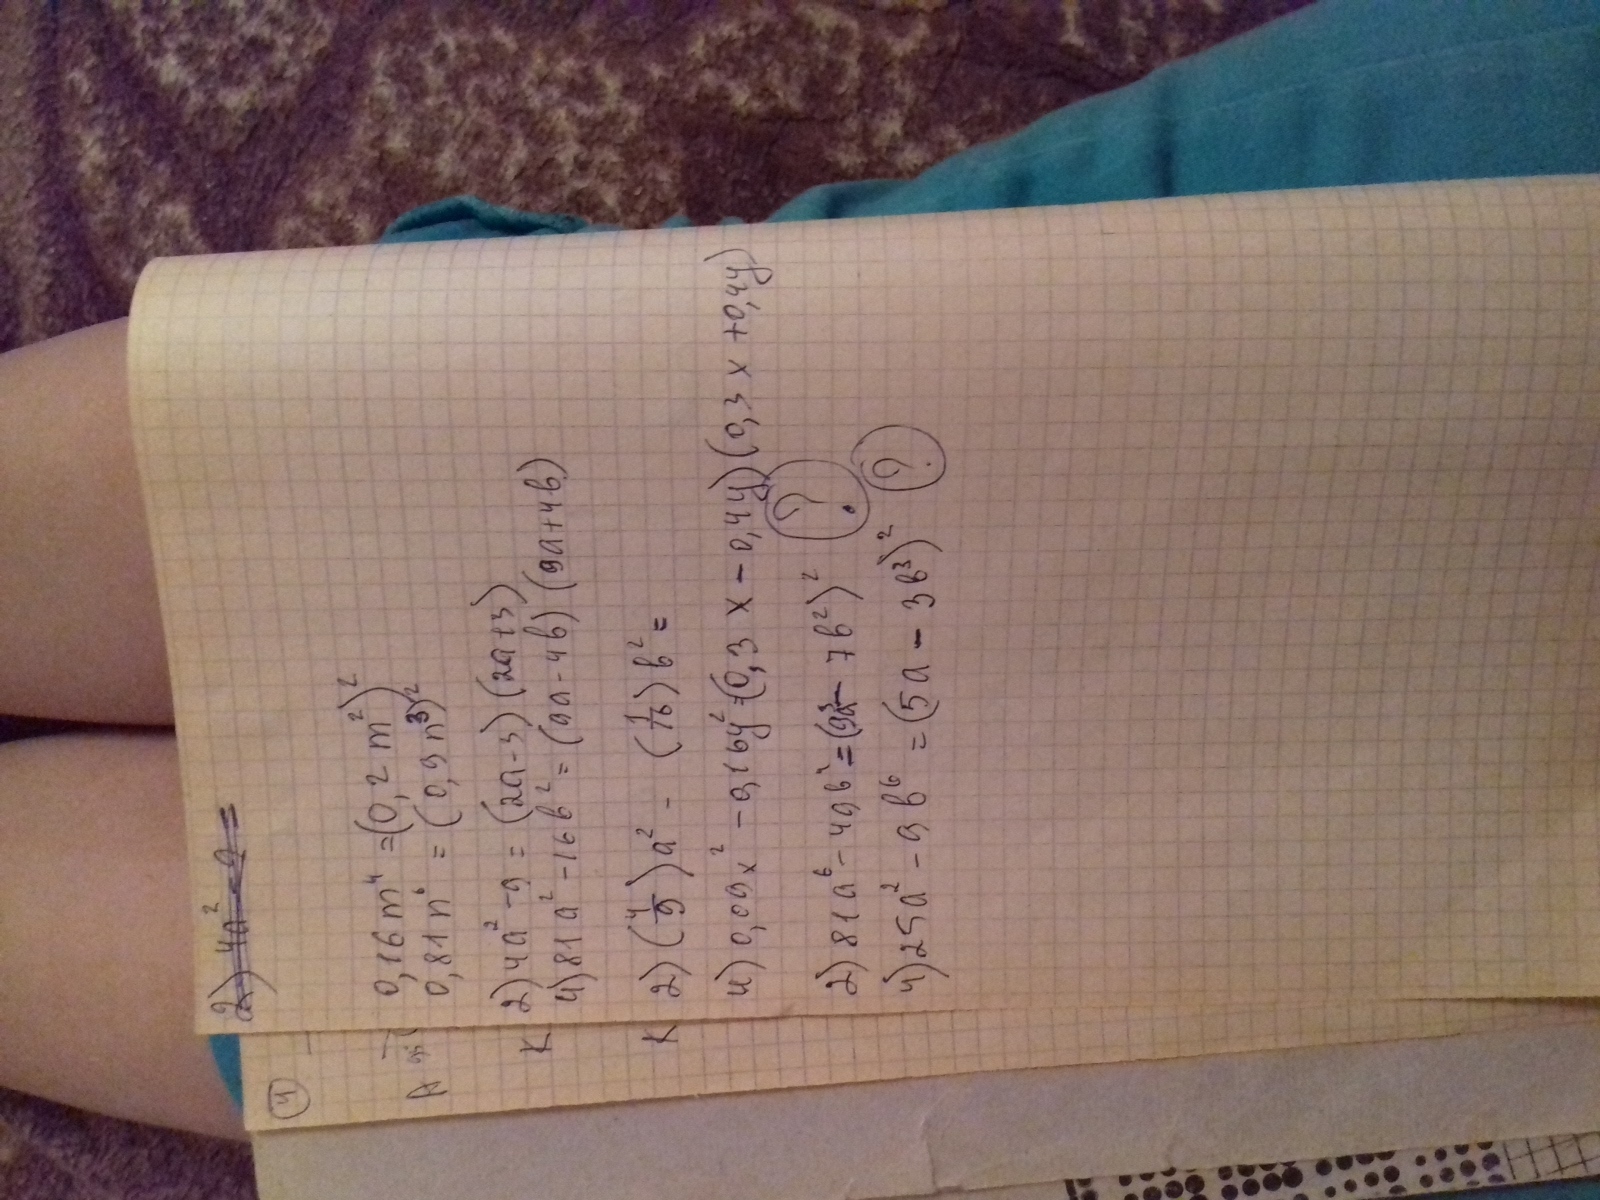 2) 4a² - 9 =
0,16m⁴ = (0,2m²)²
0,81n⁶ = (0,9n³)²
2) 4a² - 9 = (2a - 3) (2a + 3)
4) 81a² - 16b² = (9a - 4b) (9a + 4b)
2) (4/9)a² - (1/16)b² =
4) 0,09x² - 0,16y² = (0,3x - 0,4y) (0,3x + 0,4y)
2) 81a⁶ - 49b⁴ = (9a³ - 7b²)² ?
4) 25a² - 9b⁶ = (5a - 3b³)² ?
4
К
К